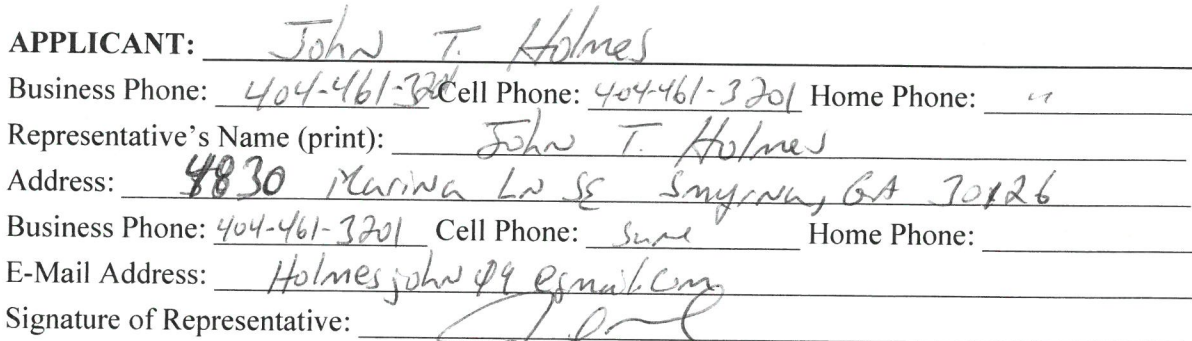 APPLICANT: John T. Holmes
Business Phone: 404-461-3201 Cell Phone: 404-461-3201 Home Phone: "
Representative's Name (print): John T. Holmes
Address: 4830 Marina Ln SE Smyrna, GA
Business Phone: 404-461-3201 Cell Phone: Same Home Phone:
E-Mail Address:
Signature of Representative: